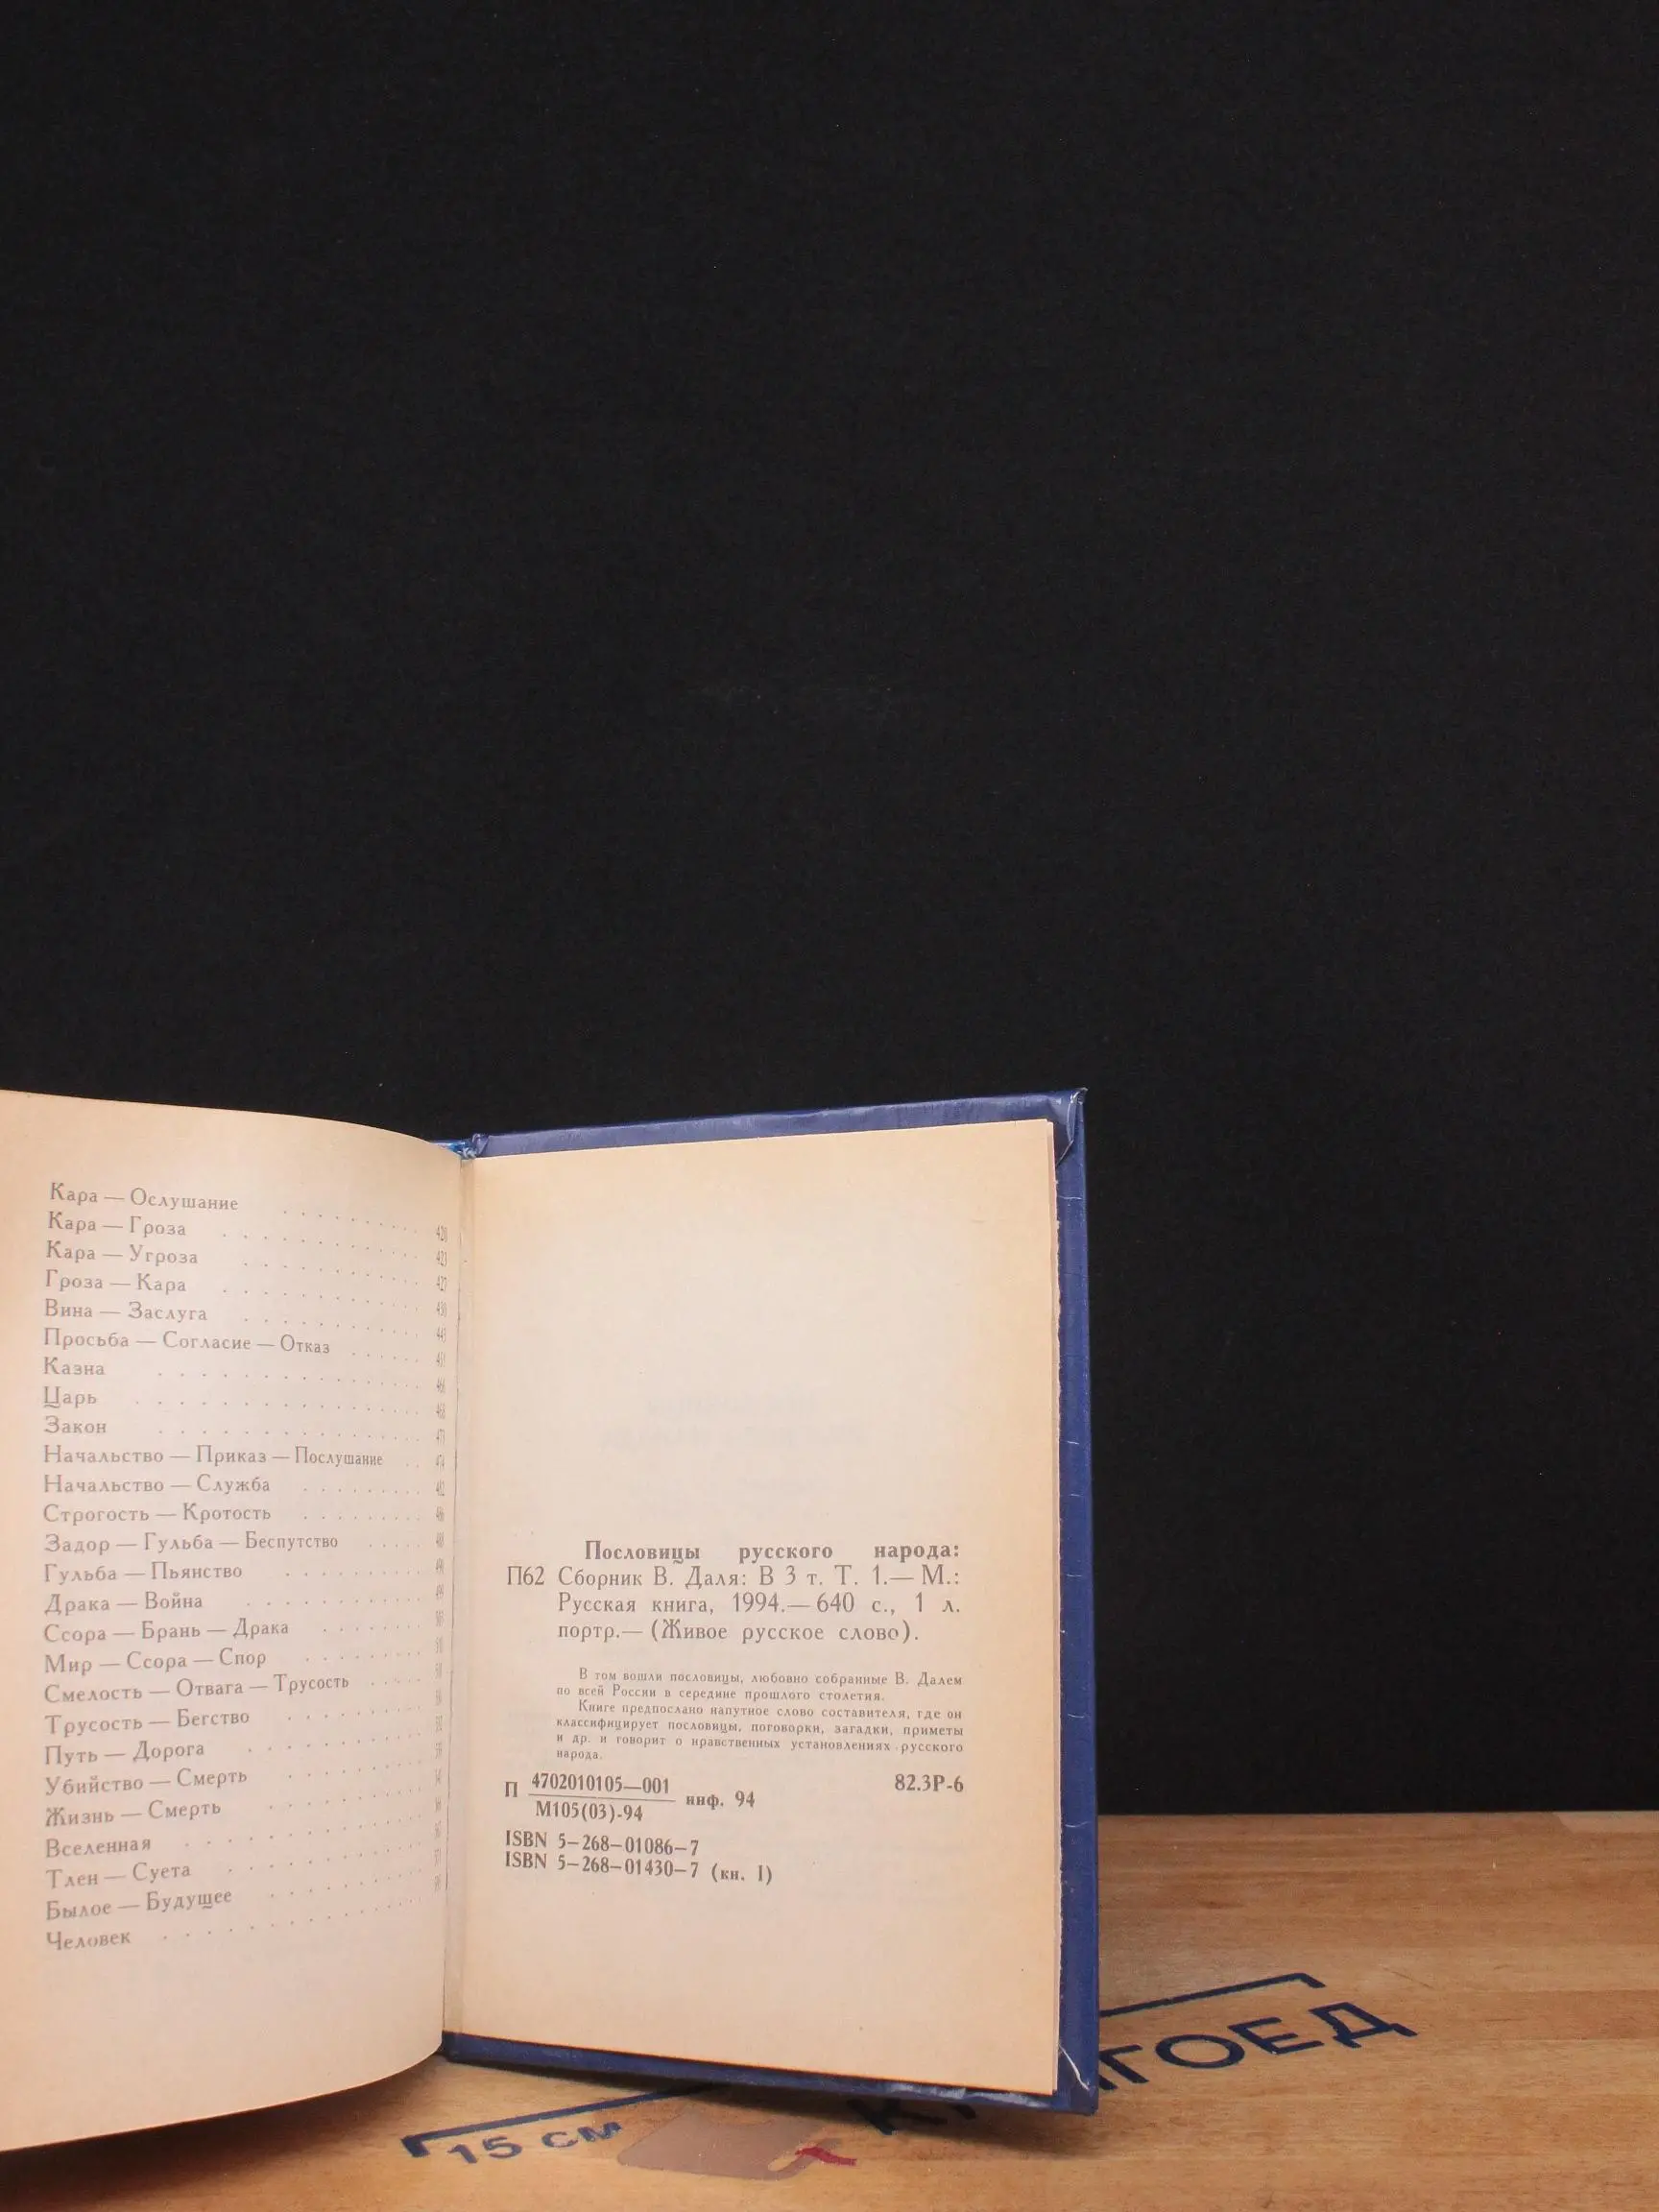 Кара — Ослушание
Кара — Гроза
Кара — Угроза
Гроза — Кара
Вина — Заслуга
Просьба — Согласие — Отказ
Казна
Царь
Закон
Начальство — Приказ — Послушание
Начальство — Служба
Строгость — Кротость
Задор — Гульба — Беспутство
Гульба — Пьянство
Драка — Война
Ссора — Брань — Драка
Мир — Ссора — Спор
Смелость — Отвага — Трусость
Трусость — Бегство
Путь — Дорога
Убийство — Смерть
Жизнь — Смерть
Вселенная
Тлен — Суета
Былое — Будущее
Человек
Пословицы русского народа:
П62 Сборник В. Даля: В 3 т. Т. 1.— М.:
Русская книга, 1994.— 640 с., 1 л.
портр.— (Живое русское слово).
В том вошли пословицы, любовно собранные В. Далем
по всей России в середине прошлого столетия.
Книге предпослано напутное слово составителя, где он
классифицирует пословицы, поговорки, загадки, приметы
и др. и говорит о нравственных установлениях русского
народа.
П 4702010105—001 инф. 94 82.3Р-6
М105(03)-94
ISBN 5–268–01086–7
ISBN 5–268–01430–7 (кн. I)
15 см